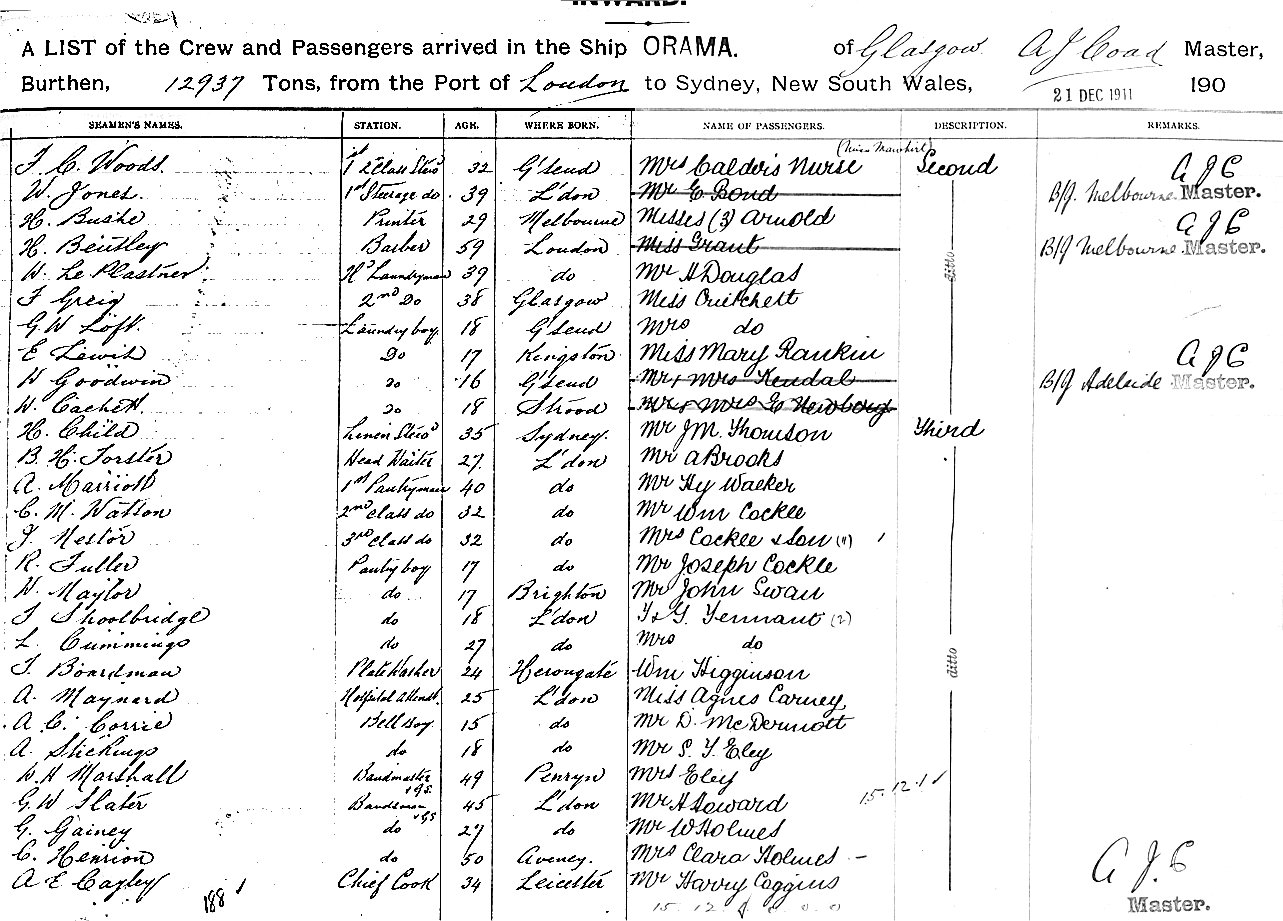 INWARD.
A LIST of the Crew and Passengers arrived in the Ship ORAMA. of Glasgow A J Coad Master,
Burthen, 12937 Tons, from the Port of London to Sydney, New South Wales, 21 DEC 1911 190
SEAMEN'S NAMES. STATION. AGE. WHERE BORN. NAME OF PASSENGERS. DESCRIPTION. REMARKS.
F. C. Woods 1st & 2 Class Std 32 G'send Mrs Calders Nurse Second A J C
W. Jones. 1st Steerage do 39 L'don Mr E Bond B/J. Melbourne Master.
H. Bushe Printer 29 Melbourne Misses (3) Arnold A J C
H. Bentley Barber 59 London Miss Grant B/J Melbourne Master.
W. Le Plastner Hd Laundryman 39 do Mr H Douglas ditto
F Greig 2nd Do 38 Glasgow Miss Quitchett
G W Loft. Laundry boy 18 G'send Mrs do
E Lewis Do 17 Kingston Miss Mary Rankin A J C
W Goodwin do 16 G'send Mr & Mrs Kendal B/J Adelaide Master.
W. Cachett do 18 Strood Mr & Mrs G Newborg
H. Child Linen Std 35 Sydney. Mr J M. Thomson Third
B. H. Forster Head Waiter 27 L'don Mr A Brooks
A. Marriott 1st Pantryman 40 do Mr Hy Walker
C. M. Watson 2nd class do 32 do Mr Wm Cockle
J. Nestor 3rd class do 32 do Mrs Cockle & Son (11)
R. Fuller Pantry boy 17 do Mr Joseph Cockle
W. Maylor do 17 Brighton Mr John Swan
F Shoolbridge do 18 L'don T & G. Tennant (2)
L. Cummings do 27 do Mrs do
F. Boardman Plate Washer 24 Herongate Wm Higginson ditto
A. Maynard Hospital Attendt. 25 L'don Miss Agnes Carney
A. C. Corrie Bell Boy 15 do Mr D. McDermott
A. Stickings do 18 do Mr S. T. Eley
W. H Marshall Bandmaster & GS. 49 Penryn Mrs Eley 15.12.11
G. W Slater Bandsman & GS 45 L'don Mr H Howard
G. Gainey do 27 do Mr W Holmes
C. Henrion do 50 Aveney. Mrs Clara Holmes – A J. C
A E Cagley Chief Cook 34 Leicester Mr Harry Coggins Master.
188